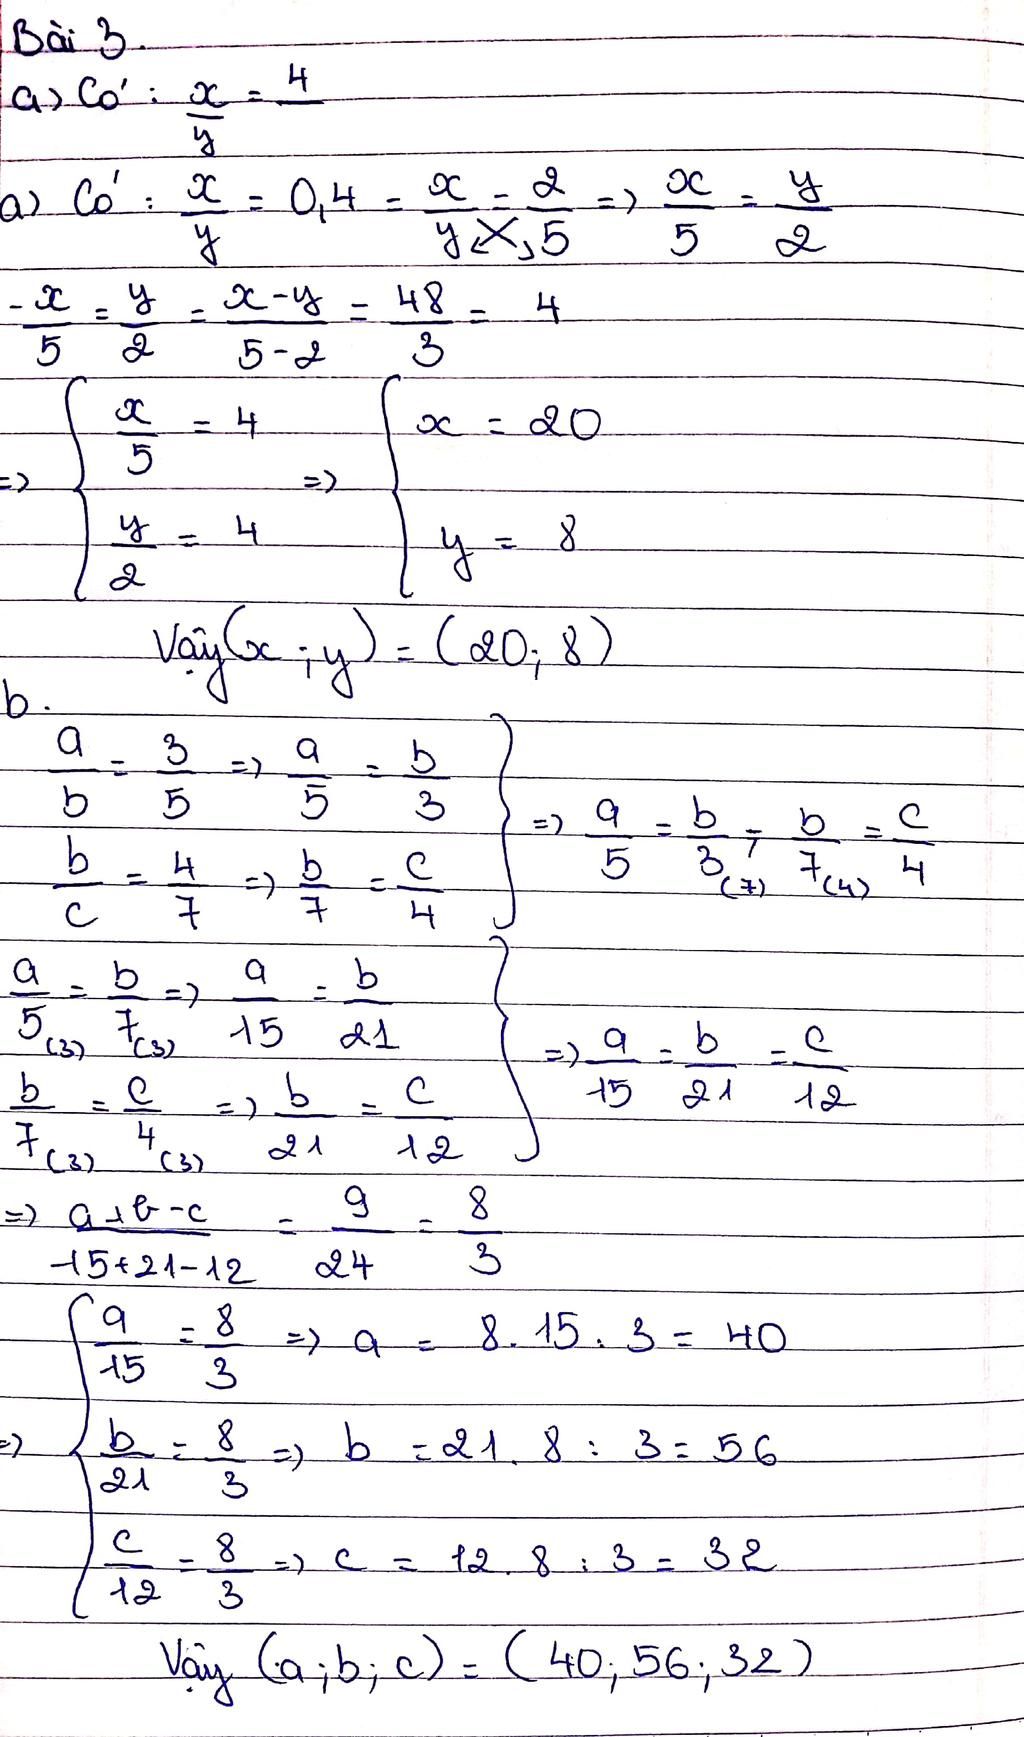 Bài 3.
a) Có : x/y = 4/
a) Có : x/y = 0,4 = x/y = 2/5 => x/5 = y/2
- x/5 = y/2 = x-y/5-2 = 48/3 = 4
=> { x/5 = 4 => { x = 20
y/2 = 4 y = 8
Vậy (x ; y) = (20; 8)
b.
a/b = 3/5 => a/5 = b/3 } => a/5 = b/3 (7) ; b/7 (4) = c/4
b/c = 4/7 => b/7 = c/4
a/5 (3) = b/7 (3) => a/15 = b/21 } => a/15 = b/21 = c/12
b/7 (3) = c/4 (3) => b/21 = c/12
=> a+b-c/15+21-12 = 9/24 = 8/3
=> { a/15 = 8/3 => a = 8.15:3 = 40
b/21 = 8/3 => b = 21.8:3 = 56
c/12 = 8/3 => c = 12.8:3 = 32
Vậy (a;b;c) = (40;56;32)